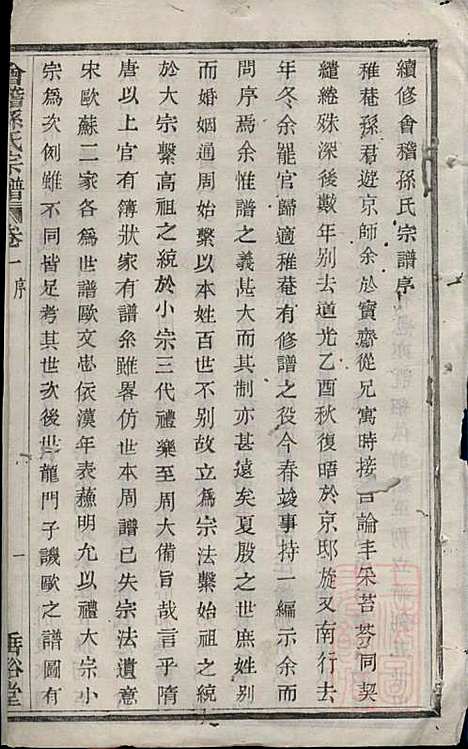 續修會稽孫氏宗譜序
稚菴孫君遊京師余於寳齋從兄寓時接言論丰采苔芩同契
繾綣殊深後數年別去道光乙酉秋復晤於京邸旋又南行去
年冬余罷官歸適稚菴有修譜之役今春竣事持一編示余而
問序焉余惟譜之義甚大而其制亦甚遠矣夏殷之世庶姓別
而婚姻通周始繫以本姓百世不别故立爲宗法繫始祖之統
於大宗繫高祖之統於小宗三代禮樂至周大備旨哉言乎隋
唐以上官有簿狀家有譜系雖畧仿世本周譜已失宗法遺意
宋歐蘇二家各爲世譜歐文忠依漢年表蘓明允以禮大宗小
宗爲次例雖不同皆足考其世次後世龍門子譏歐之譜圖有
會稽孫氏宗譜 卷一 序 一 垂裕堂